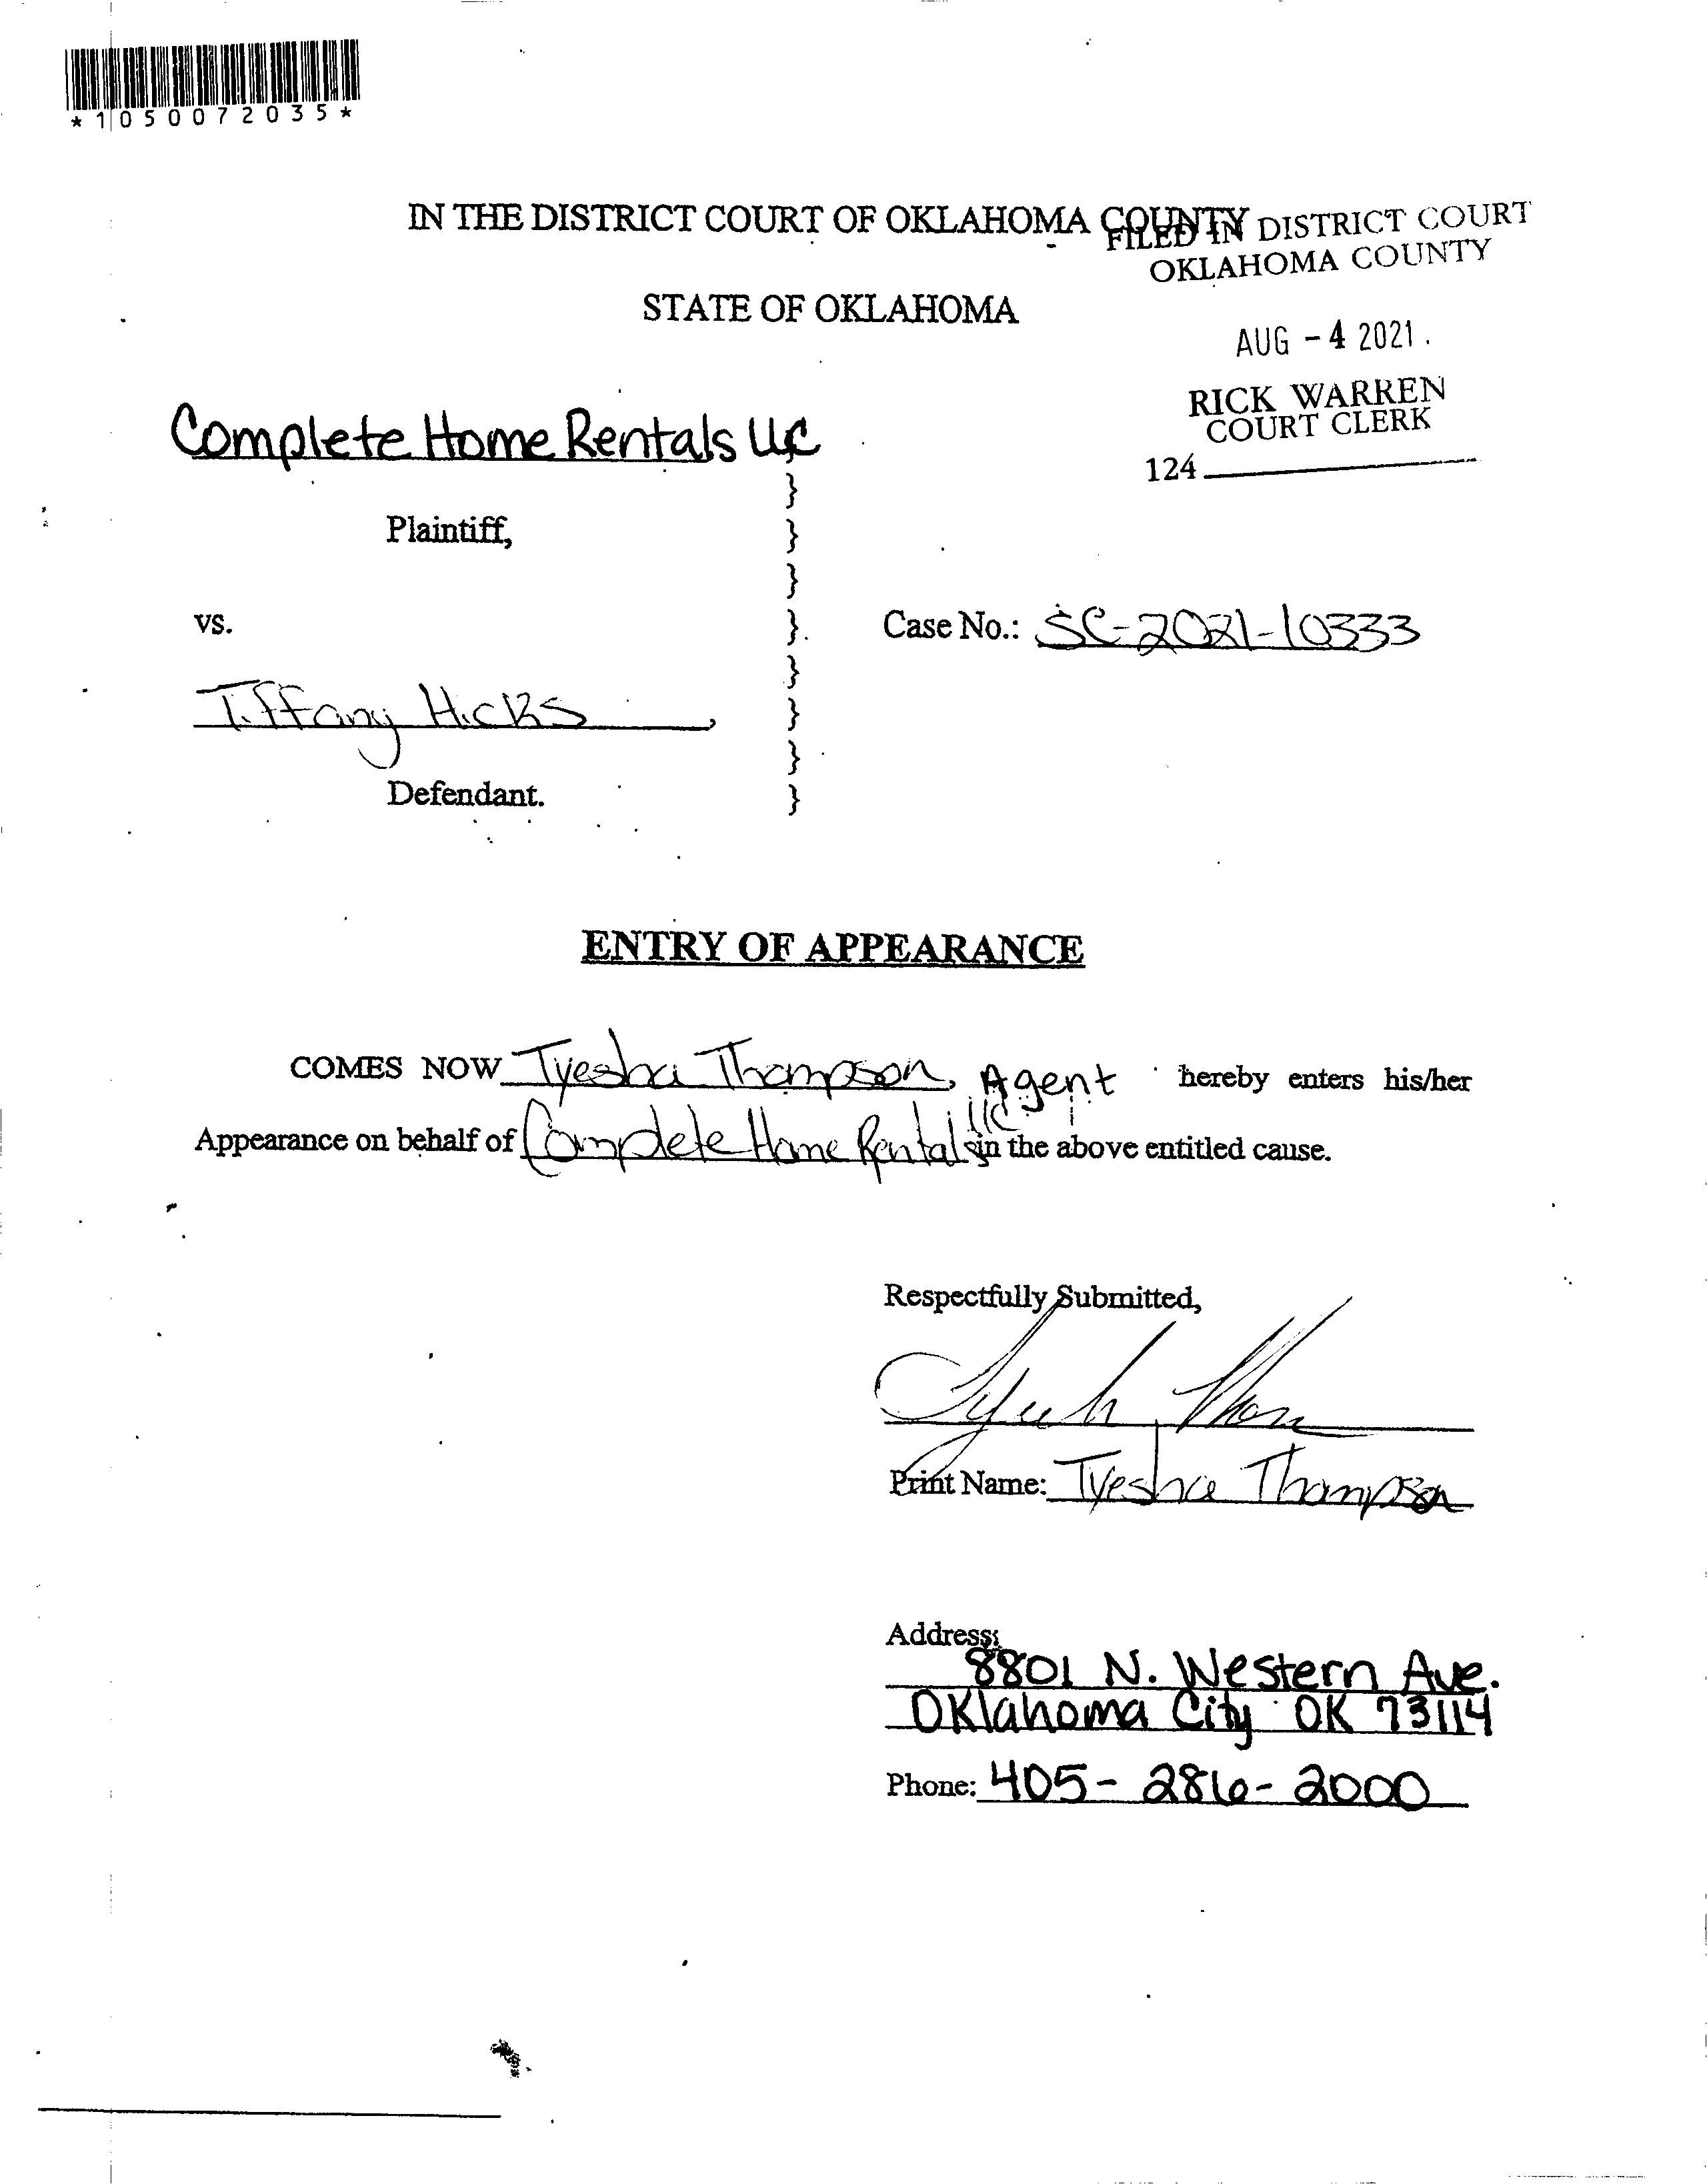 *1050072035*
IN THE DISTRICT COURT OF OKLAHOMA COUNTY
FILED IN DISTRICT COURT
OKLAHOMA COUNTY
STATE OF OKLAHOMA
AUG - 4 2021
RICK WARREN
COURT CLERK
124
Complete Home Rentals LLC
}
Plaintiff,
}
}
vs.
}
Case No.: SC-2021-10333
}
Tiffany Hicks,
}
}
Defendant.
}
ENTRY OF APPEARANCE
COMES NOW Tyesha Thompson, Agent hereby enters his/her
Appearance on behalf of Complete Home Rentals LLC in the above entitled cause.
Respectfully Submitted,
Print Name: Tyesha Thompson
Address:
8801 N. Western Ave.
Oklahoma City OK 73114
Phone: 405-286-2000